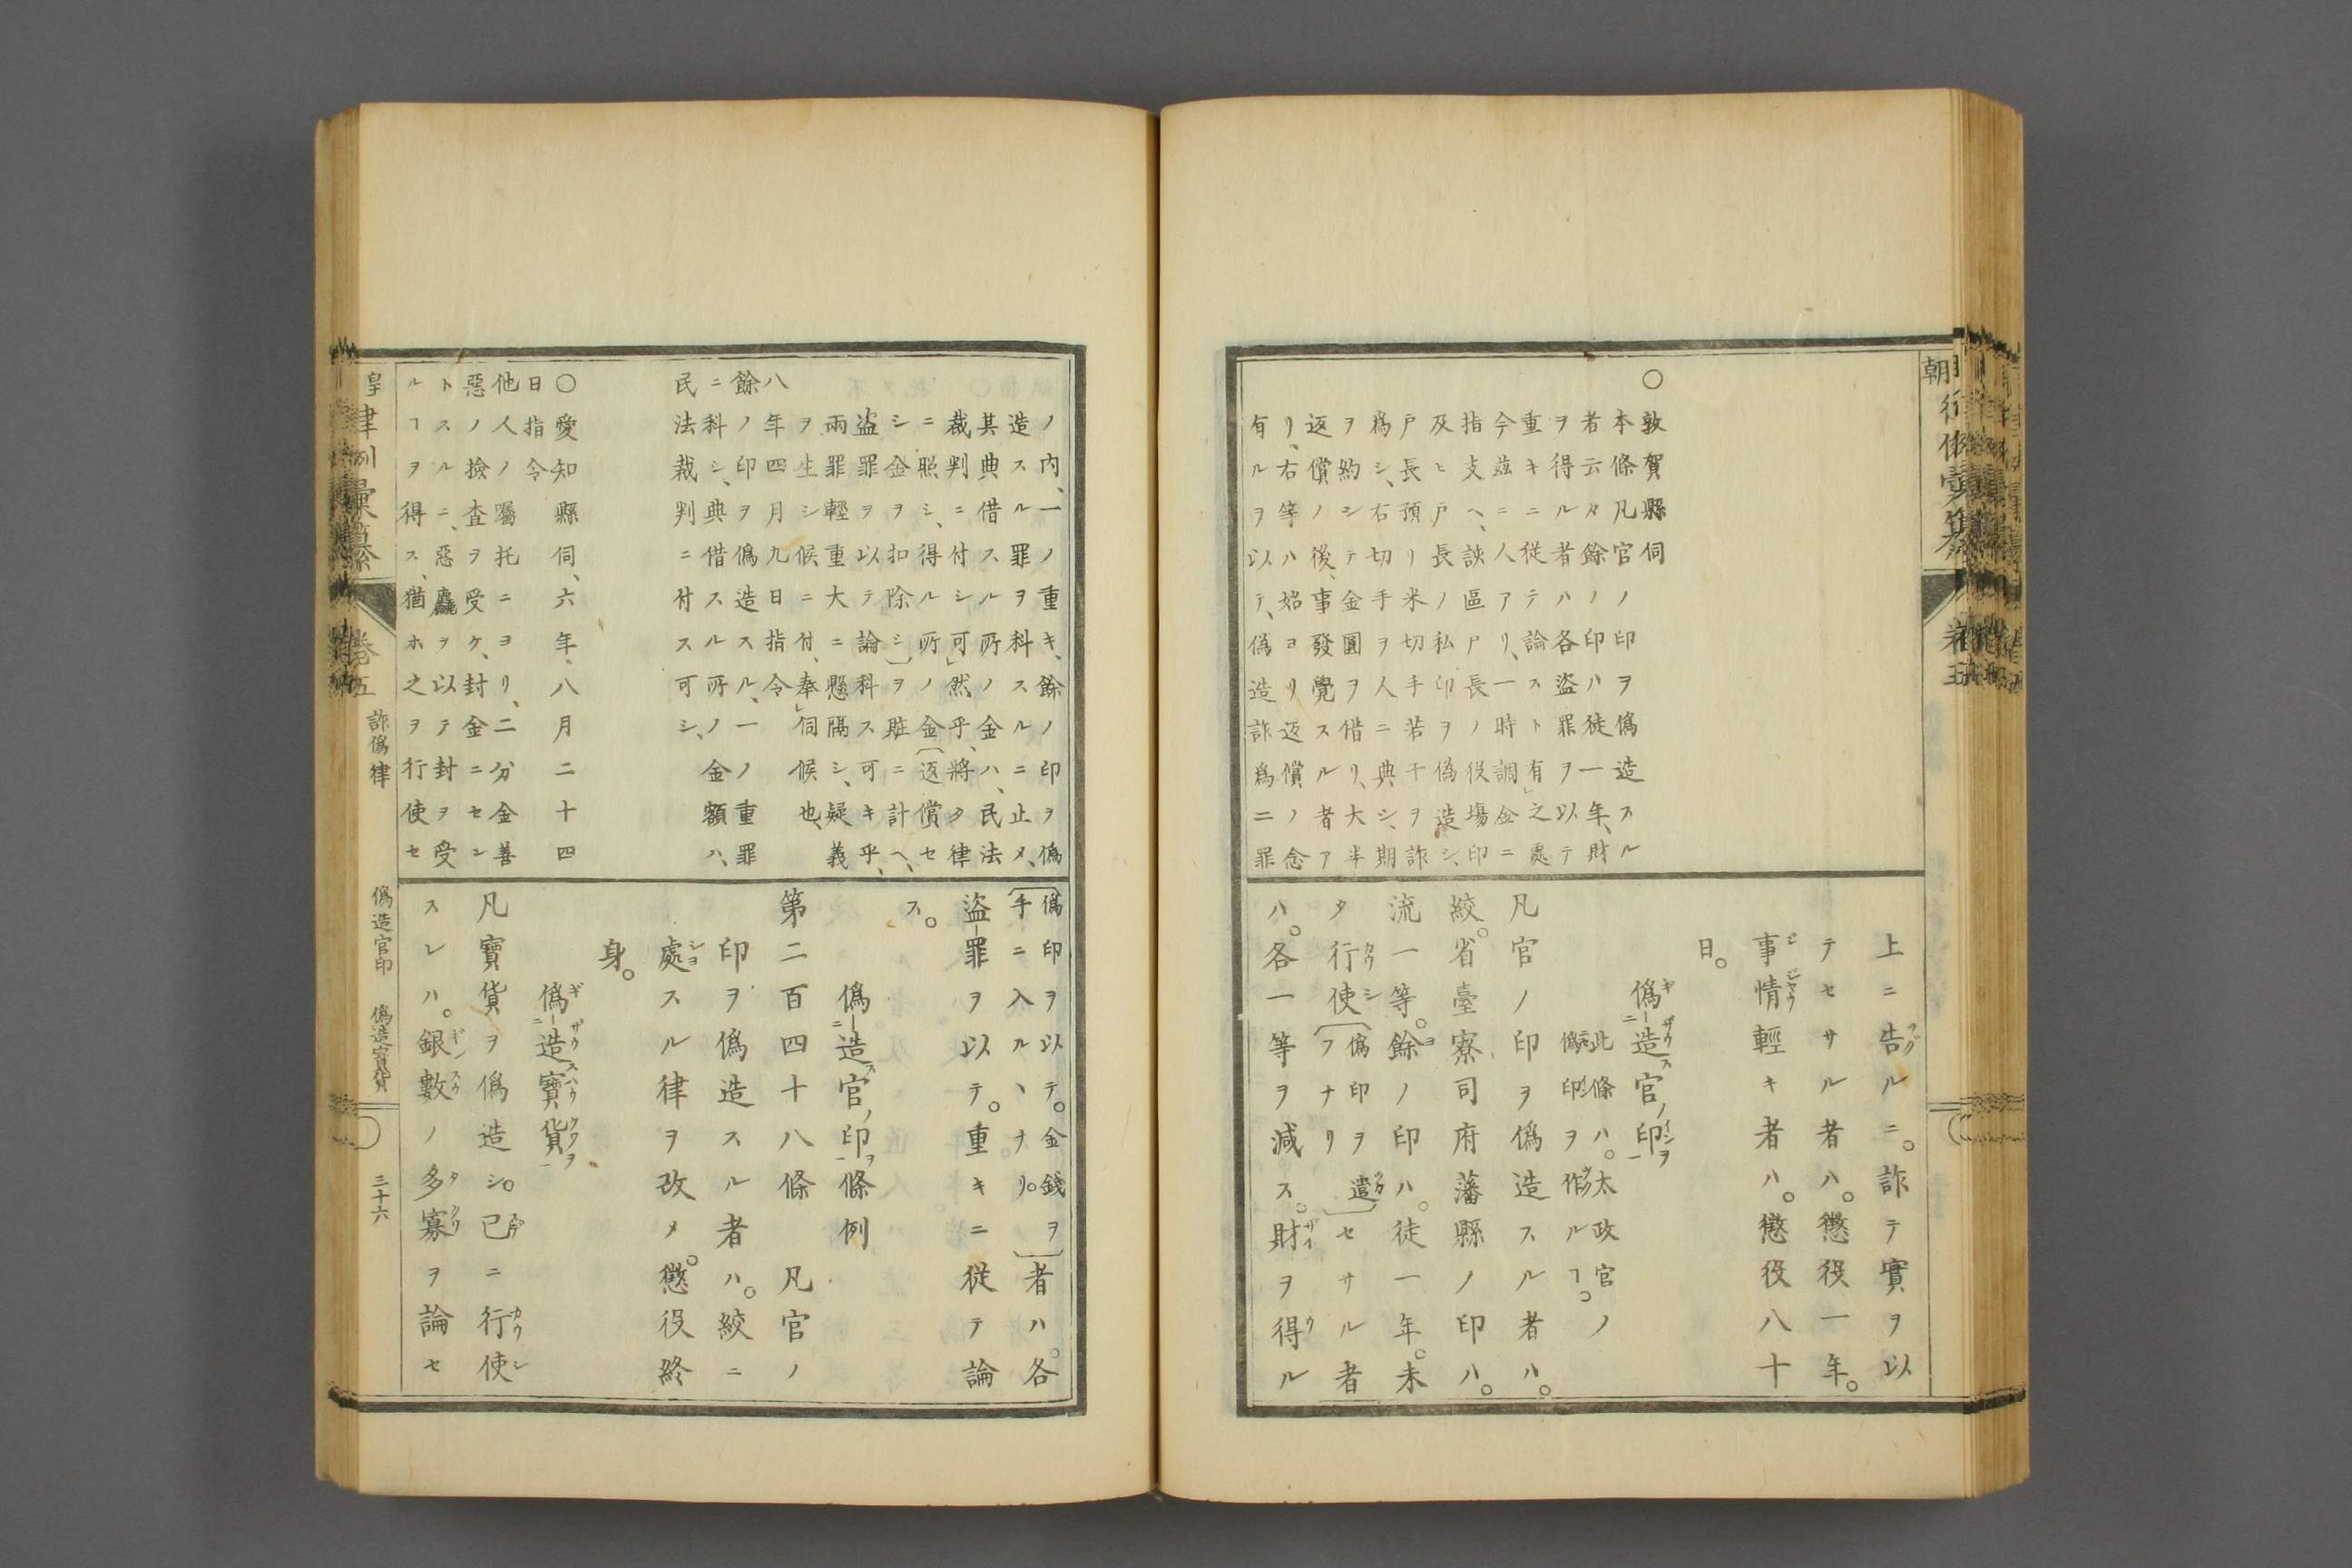 上ニ告ルニ。詐テ實ヲ以
テセサル者ハ。懲役一年。
事情輕キ者ハ。懲役八十
日。
偽造官印
此條ハ。太政官ノ
偽印ヲ作ルヿ。
凡官ノ印ヲ偽造スル者ハ。
絞。省臺寮司府藩縣ノ印ハ。
流一等。餘ノ印ハ。徒一年。未
タ行使〔偽印ヲ遣フナリ〕セサル者
ハ。各一等ヲ減ス。財ヲ得ル
○敦賀縣伺
本條凡官ノ印ヲ偽造スル
者云々餘ノ印ハ徒一年、財
ヲ得ル者ハ各盜罪ヲ以テ
重キニ從テ論スト有之處
今茲ニ人アリ、一時調金ニ
指支ヘ、該區戸長ノ役場印
及ヒ戸長ノ私印ヲ偽造シ、
戸長預リ米切手若干ヲ詐
爲シ、右切手ヲ人ニ典シ、期
ヲ約シテ金圓ヲ借リ、大半
返償ノ後、事發覺スル者ア
リ、右等ハ始ヨリ返償ノ念
有ルヲ以テ、偽造詐爲二罪
ノ内、一ノ重キ、餘ノ印ヲ偽
造スル罪ヲ科スルニ止メ、
其典借スル所ノ金ハ、民法
裁判ニ付シ可然乎、將タ律
ニ照シ、得ル所ノ金〔返償セ
シ金ヲ扣除シ〕ヲ賍ニ計ヘ、
盜罪ヲ以テ論科ス可キ乎、
兩罪輕重大ニ懸隔シ、疑義
ヲ生シ候ニ付、奉伺候也、
八年四月九日指令
餘ノ印ヲ偽造スル、一ノ重罪
ニ科シ、典借スル所ノ金額ハ、
民法裁判ニ付ス可シ、
○愛知縣伺、六年、八月二十四
日指令
他人ノ囑托ニヨリ、二分金善
惡ノ撿査ヲ受ケ、封金ニセン
トスルニ、惡贋ヲ以テ封ヲ受
ルヿヲ得ス、猶ホ之ヲ行使セ
〔偽印ヲ以テ。金錢ヲ
手ニ入ルヽナリ。〕者ハ。各
盜罪ヲ以テ。重キニ從テ論
ス。
偽造官印條例
第二百四十八條　凡官ノ
印ヲ偽造スル者ハ。絞ニ
處スル律ヲ改メ。懲役終
身。
偽造寶貨
凡寶貨ヲ偽造シ。已ニ行使
スレハ。銀數ノ多寡ヲ論セ
卷五
詐偽律
偽造官印　偽造寶貨
三十六